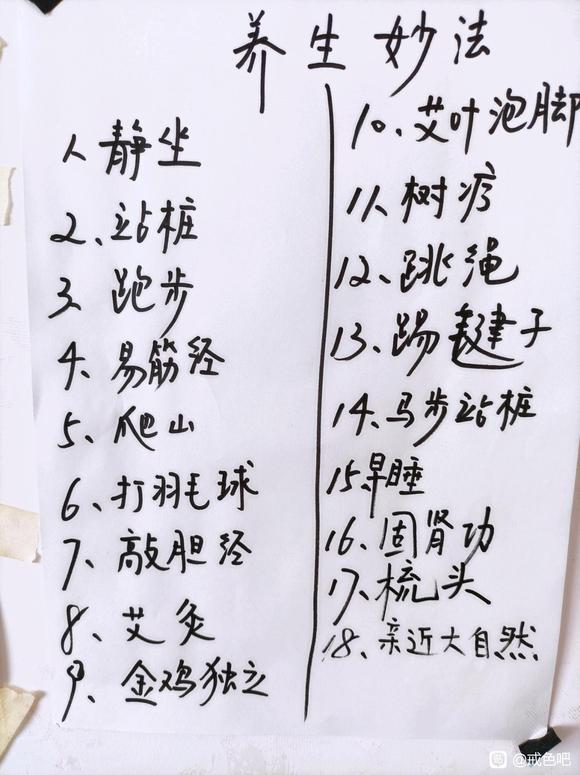 养生妙法
1、静坐
2、站桩
3、跑步
4、易筋经
5、爬山
6、打羽毛球
7、敲胆经
8、艾灸
9、金鸡独立
10、艾叶泡脚
11、树疗
12、跳绳
13、踢毽子
14、马步站桩
15早睡
16、固肾功
17、梳头
18、亲近大自然
@戒色吧